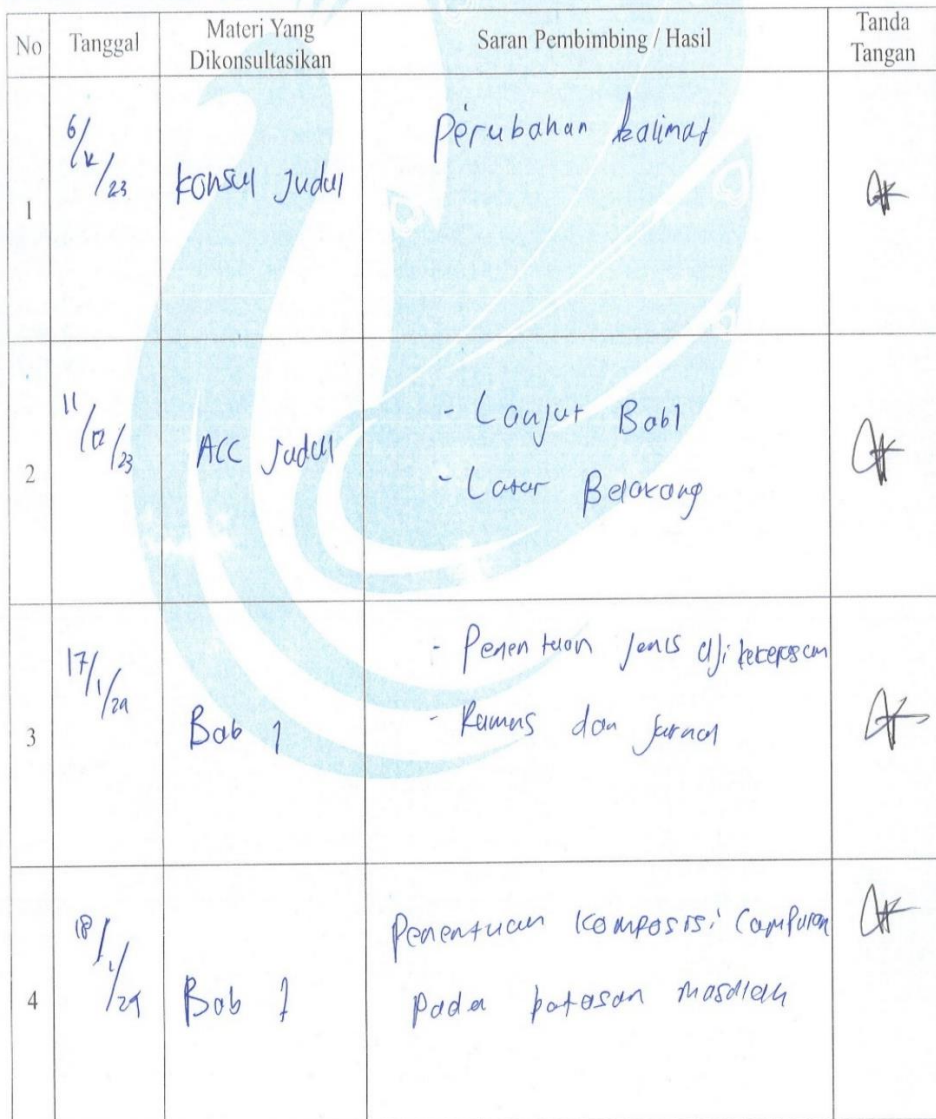 No Tanggal Materi Yang Dikonsultasikan Saran Pembimbing / Hasil Tanda Tangan
1 6/12/23 Konsul Judul Perubahan kalimat
2 11/12/23 ACC Judul - Lanjut Bab 1
- Latar Belakang
3 17/1/24 Bab 1 - Penentuan jenis uji kekerasan
- Rumus dan jurnal
4 18/1/24 Bab 1 Penentuan komposisi Campuran
pada batasan masalah